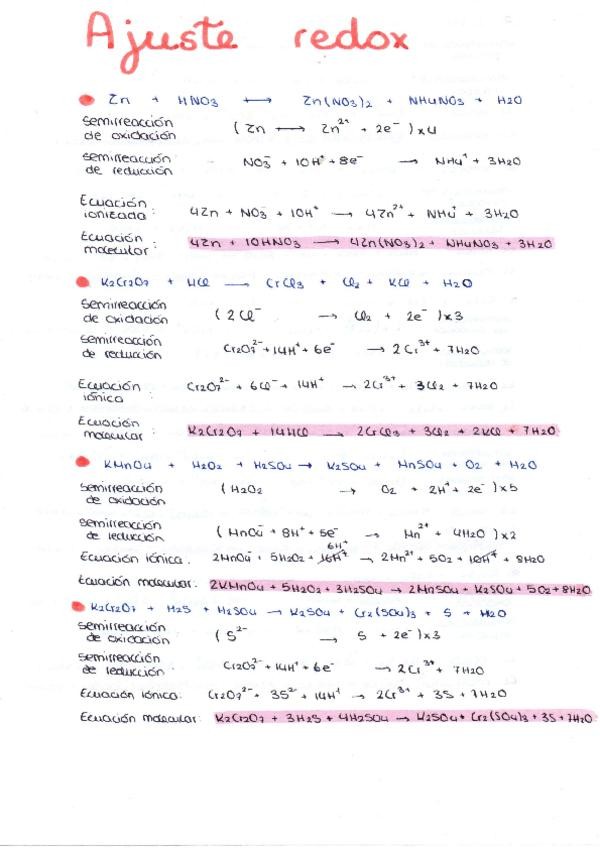 Ajuste redox
Zn + HNO3 ⟷ Zn(NO3)2 + NH4NO3 + H2O
Semirreacción de oxidación (Zn ⟷ Zn²⁺ + 2e⁻)x4
Semirreacción de reducción NO3⁻ + 10H⁺ + 8e⁻ → NH4⁺ + 3H2O
Ecuación ionizada: 4Zn + NO3⁻ + 10H⁺ → 4Zn²⁺ + NH4⁺ + 3H2O
Ecuación molecular: 4Zn + 10HNO3 → 4Zn(NO3)2 + NH4NO3 + 3H2O
K2Cr2O7 + HCl → CrCl3 + Cl2 + KCl + H2O
Semirreacción de oxidación (2Cl⁻ → Cl2 + 2e⁻)x3
Semirreacción de reducción Cr2O7²⁻ + 14H⁺ + 6e⁻ → 2Cr³⁺ + 7H2O
Ecuación iónica Cr2O7²⁻ + 6Cl⁻ + 14H⁺ → 2Cr³⁺ + 3Cl2 + 7H2O
Ecuación molecular: K2Cr2O7 + 14HCl → 2CrCl3 + 3Cl2 + 2KCl + 7H2O
KMnO4 + H2O2 + H2SO4 → K2SO4 + MnSO4 + O2 + H2O
Semirreacción de oxidación (H2O2 → O2 + 2H⁺ + 2e⁻)x5
Semirreacción de reducción (MnO4⁻ + 8H⁺ + 5e⁻ → Mn²⁺ + 4H2O)x2
6H⁺
Ecuación iónica: 2MnO4⁻ + 5H2O2 + 16H⁺ → 2Mn²⁺ + 5O2 + 10H⁺ + 8H2O
Ecuación molecular: 2KMnO4 + 5H2O2 + 3H2SO4 → 2MnSO4 + K2SO4 + 5O2 + 8H2O
K2Cr2O7 + H2S + H2SO4 → K2SO4 + Cr2(SO4)3 + S + H2O
Semirreacción de oxidación (S²⁻ → S + 2e⁻)x3
Semirreacción de reducción Cr2O7²⁻ + 14H⁺ + 6e⁻ → 2Cr³⁺ + 7H2O
Ecuación iónica: Cr2O7²⁻ + 3S²⁻ + 14H⁺ → 2Cr³⁺ + 3S + 7H2O
Ecuación molecular: K2Cr2O7 + 3H2S + 4H2SO4 → K2SO4 + Cr2(SO4)3 + 3S + 7H2O